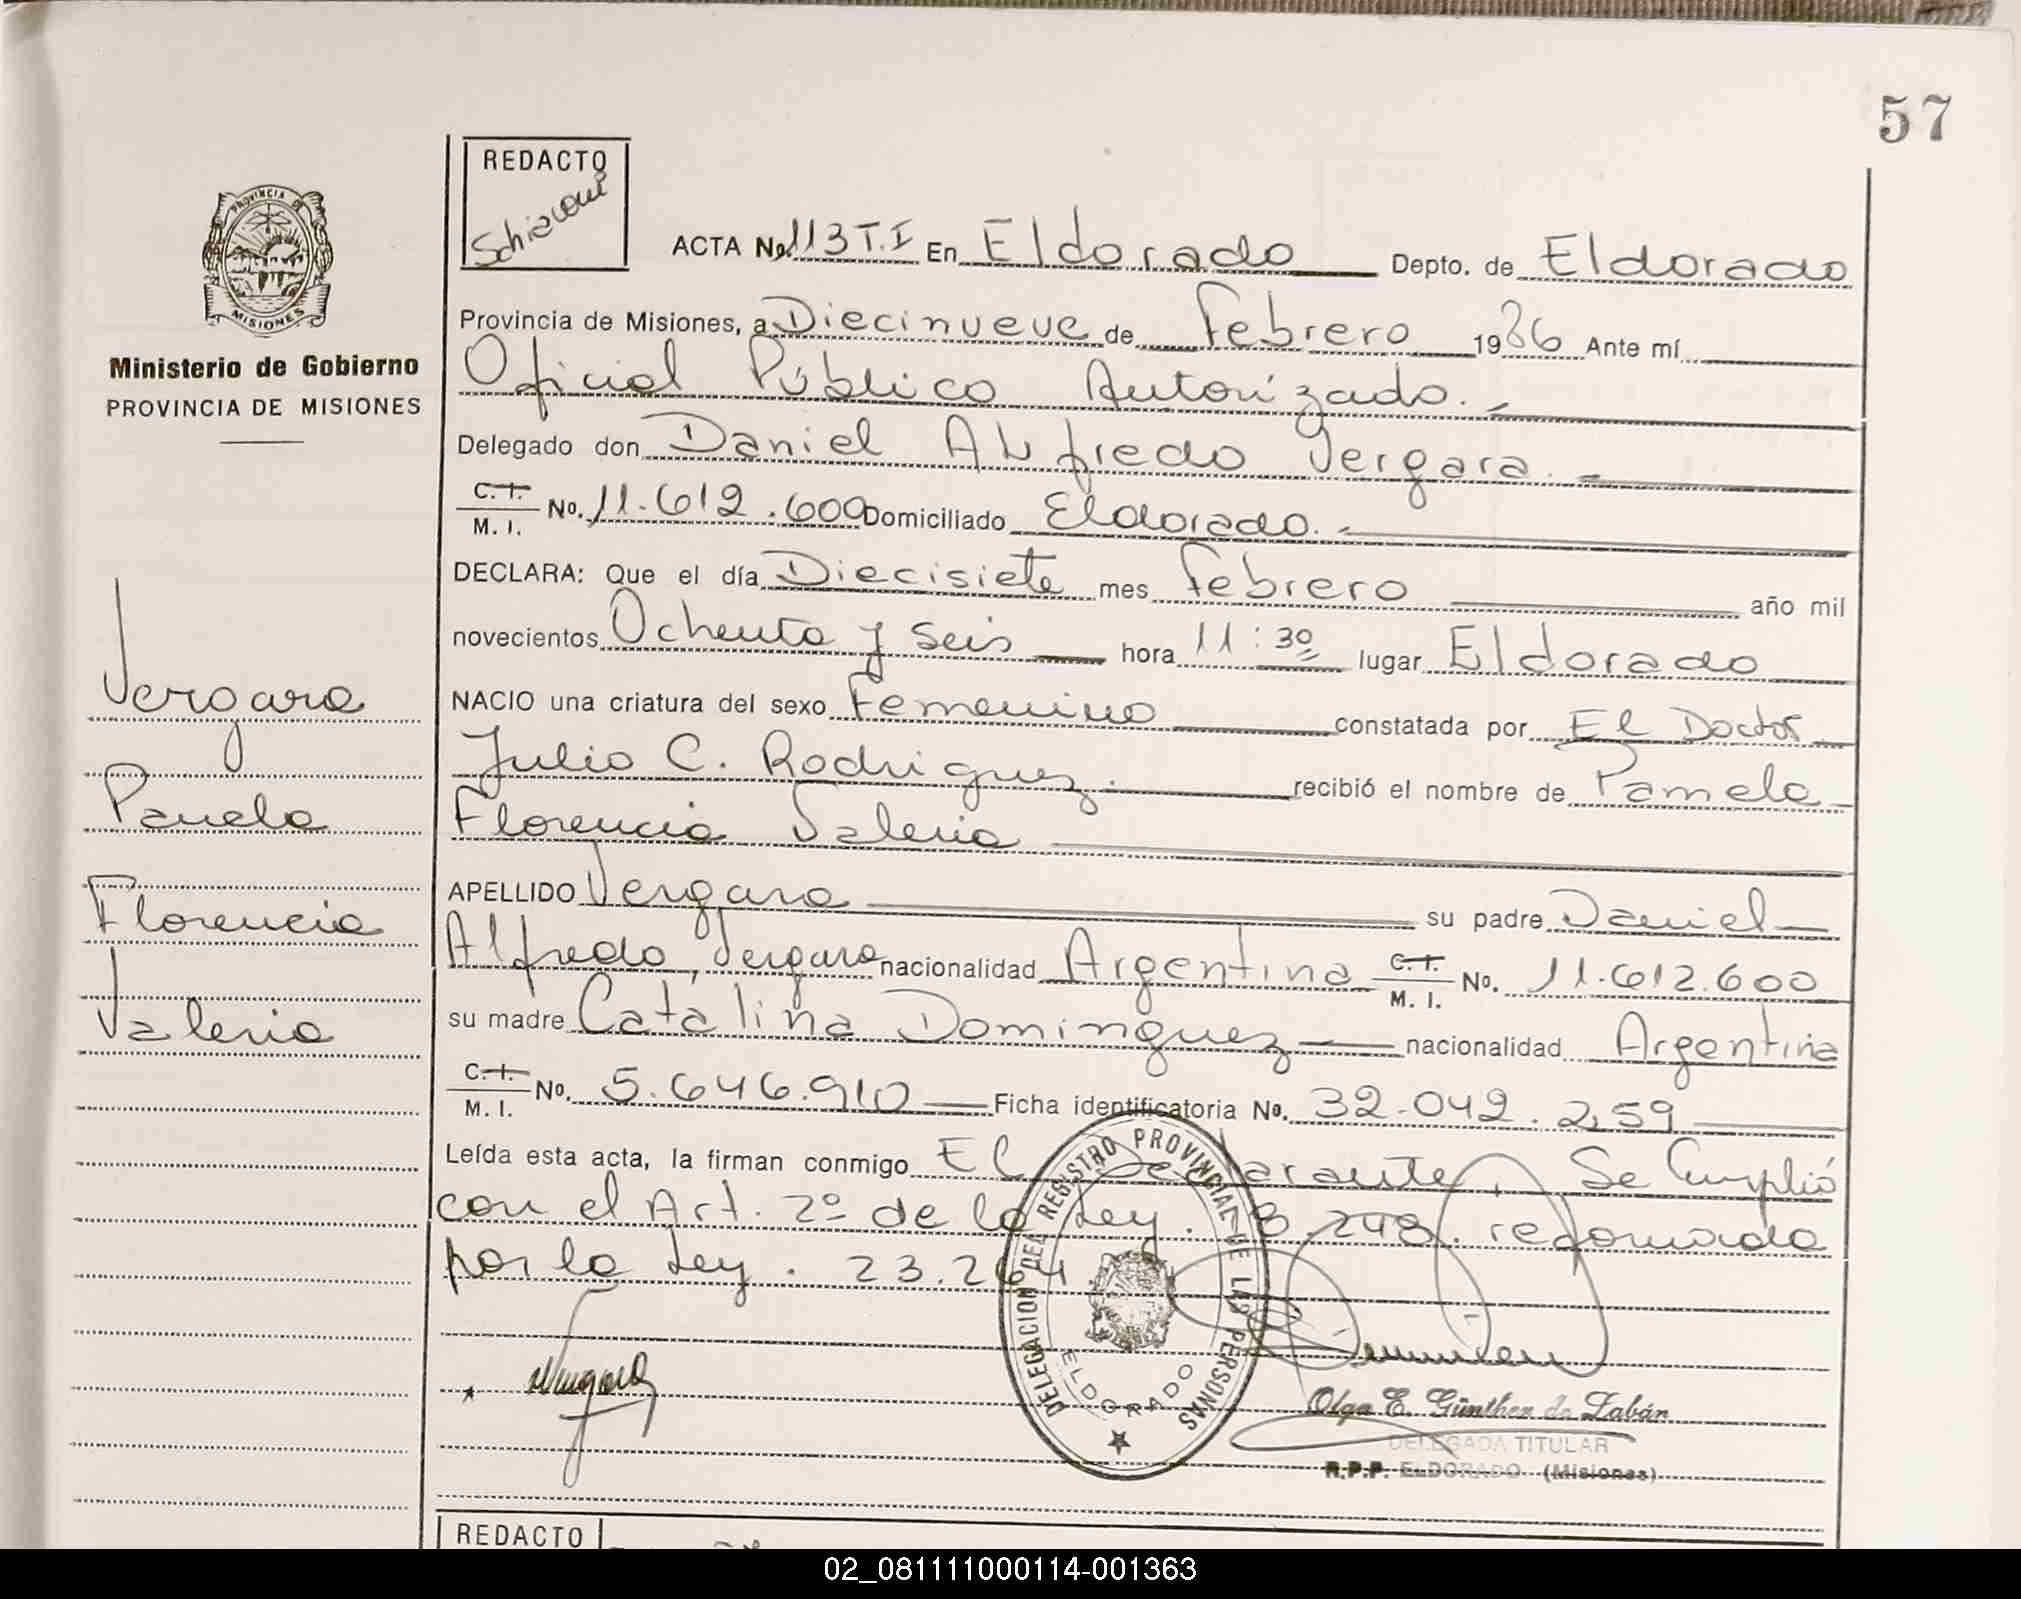 57
REDACTO
ACTA No. 113 T.I En Eldorado Depto. de Eldorado
PROVINCIA DE
MISIONES
Ministerio de Gobierno
PROVINCIA DE MISIONES
Provincia de Misiones, a Diecinueve de Febrero 1986 Ante mí
Oficial Público Autorizado.
Delegado don Daniel Alfredo Vergara.
C.I.
M. I. No. 11.612.600 Domiciliado Eldorado.
DECLARA: Que el día Diecisiete mes Febrero año mil
novecientos Ochenta y Seis hora 11:30 lugar Eldorado
NACIO una criatura del sexo Femenino constatada por El Doctor
Julio C. Rodriguez. recibió el nombre de Pamela
Florencia Valeria
APELLIDO Vergara su padre Daniel
Alfredo Vergara nacionalidad Argentina C.I. M. I. No. 11.612.600
su madre Catalina Dominguez nacionalidad Argentina
C.I.
M. I. No. 5.646.910 Ficha identificatoria No. 32.042.259
Leída esta acta, la firman conmigo El Declarante. Se Cumplió
con el Art. 2º de la Ley. 18.248. reformada
por la Ley. 23.264
Vergara
Pamela
Florencia
Valeria
DELEGACION DEL REGISTRO PROVINCIAL DE LAS PERSONAS
ELDORADO
Olga E. Günther de Zabán
DELEGADA TITULAR
R.P.P. ELDORADO (Misiones)
REDACTO
02_081111000114-001363